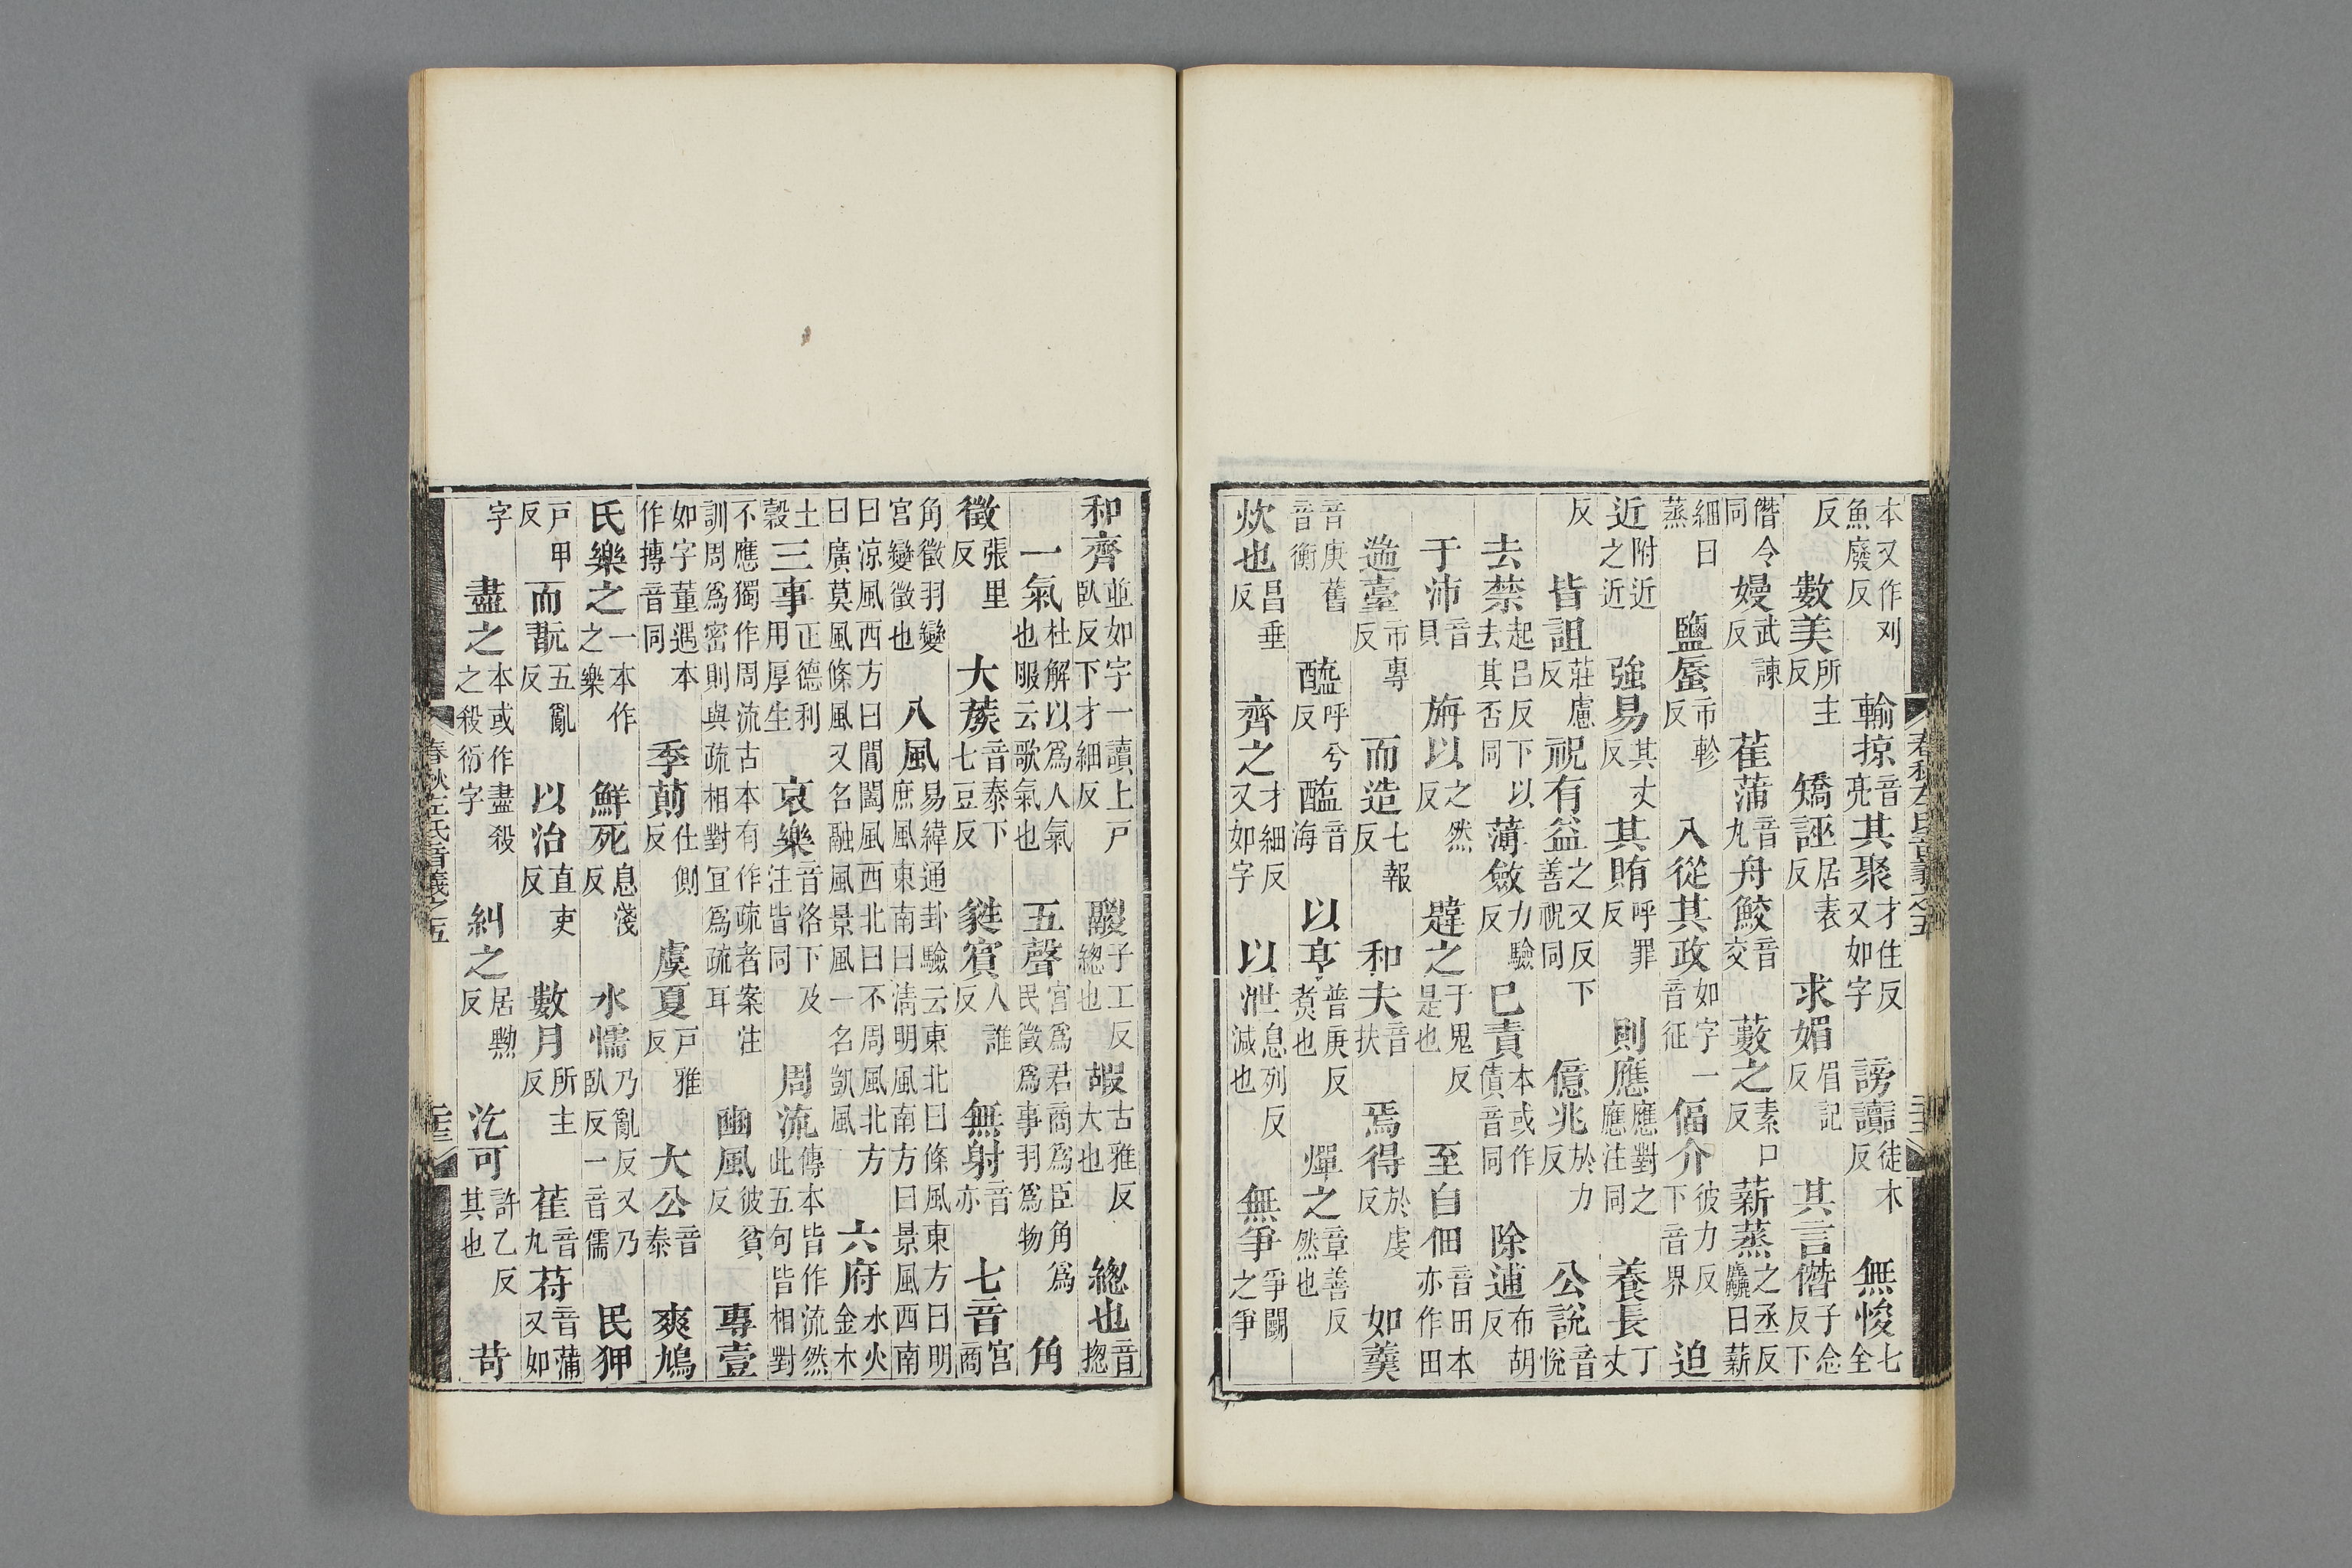 本又作刈魚廢反　輸掠音亮其聚才住反又如字　謗讟徒木反　無悛七全
反　數美所主反　矯誣居表反　求媚眉記反　其言僭子念反下
僭令同　嫚武諫反　萑蒲音九舟鮫音交　藪之素口反　薪蒸之丞反麤曰薪
細曰蒸　鹽蜃市軫反　入從其政如字一音征　偪介彼力反下音界　迫
近附近之近　強易其丈反　其賄呼罪反　則應應對之應注同　養長丁丈
反　皆詛莊慮反　祝有益之又反下善祝同　億兆於力反　公說音悅
去禁起呂反下以去其否同　薄斂力驗反　已責本或作債音同　除逋布胡反
于沛音貝　旃以之然反　韙之于鬼反是也　至自佃音田本亦作田
遄臺市專反　而造七報反　和夫音扶　焉得於虔反　如羹
音庚舊音衡　醯呼兮反　醢音海　以亨普庚反煑也　燀之章善反然也
炊也昌垂反　齊之才細反又如字　以泄息列反減也　無爭爭鬭之爭
春秋左氏音義之五
和齊並如字一讀上戶臥反下才細反　鬷子工反總也　嘏古雅反大也　總也音揔
一氣杜解以爲人氣也服云歌氣也　五聲宮爲君商爲臣角爲民徵爲事羽爲物　角
徵張里反　大蔟音泰下七豆反　蕤賓人誰反　無射音亦　七音宮商
角徵羽變宮變徵也　八風易緯通卦驗云東北曰條風東方曰明庶風東南曰淸明風南方曰景風西南
曰涼風西方曰閶闔風西北曰不周風北方曰廣莫風條風又名融風景風一名凱風　六府水火金木
土穀三事正德利用厚生　哀樂音洛下及注皆同　周流傳本皆作流然此五句皆相對
不應獨作周流古本有作疏者案注訓周爲密則與疏相對宜爲疏耳　豳風彼貧反　專壹
如字董遇本作摶音同　季萴仕側反　虞夏戶雅反　大公音泰　爽鳩
氏樂之一本作之樂　鮮死息淺反　水懦乃亂反又乃臥反一音儒　民狎
戶甲反　而翫五亂反　以治直吏反　數月所主反　萑音九苻音蒲又如
字　盡之本或作盡殺之殺衍字　糾之居黝反　汔可許乙反其也　苛
春秋左氏音義之五